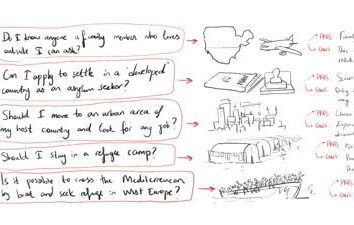 Do I know anyone a family member who lives
outside I can ask?
PROS
CONS
Can I apply to settle in a 'developed'
country as an asylum seeker?
PROS
CONS
Should I move to an urban area of
my host country and look for any job?
PROS
CONS
Should I stay in a refugee camp?
PROS
CONS
Is it possible to cross the Mediterranean
by boat and seek refuge in West Europe?
PROS
CONS